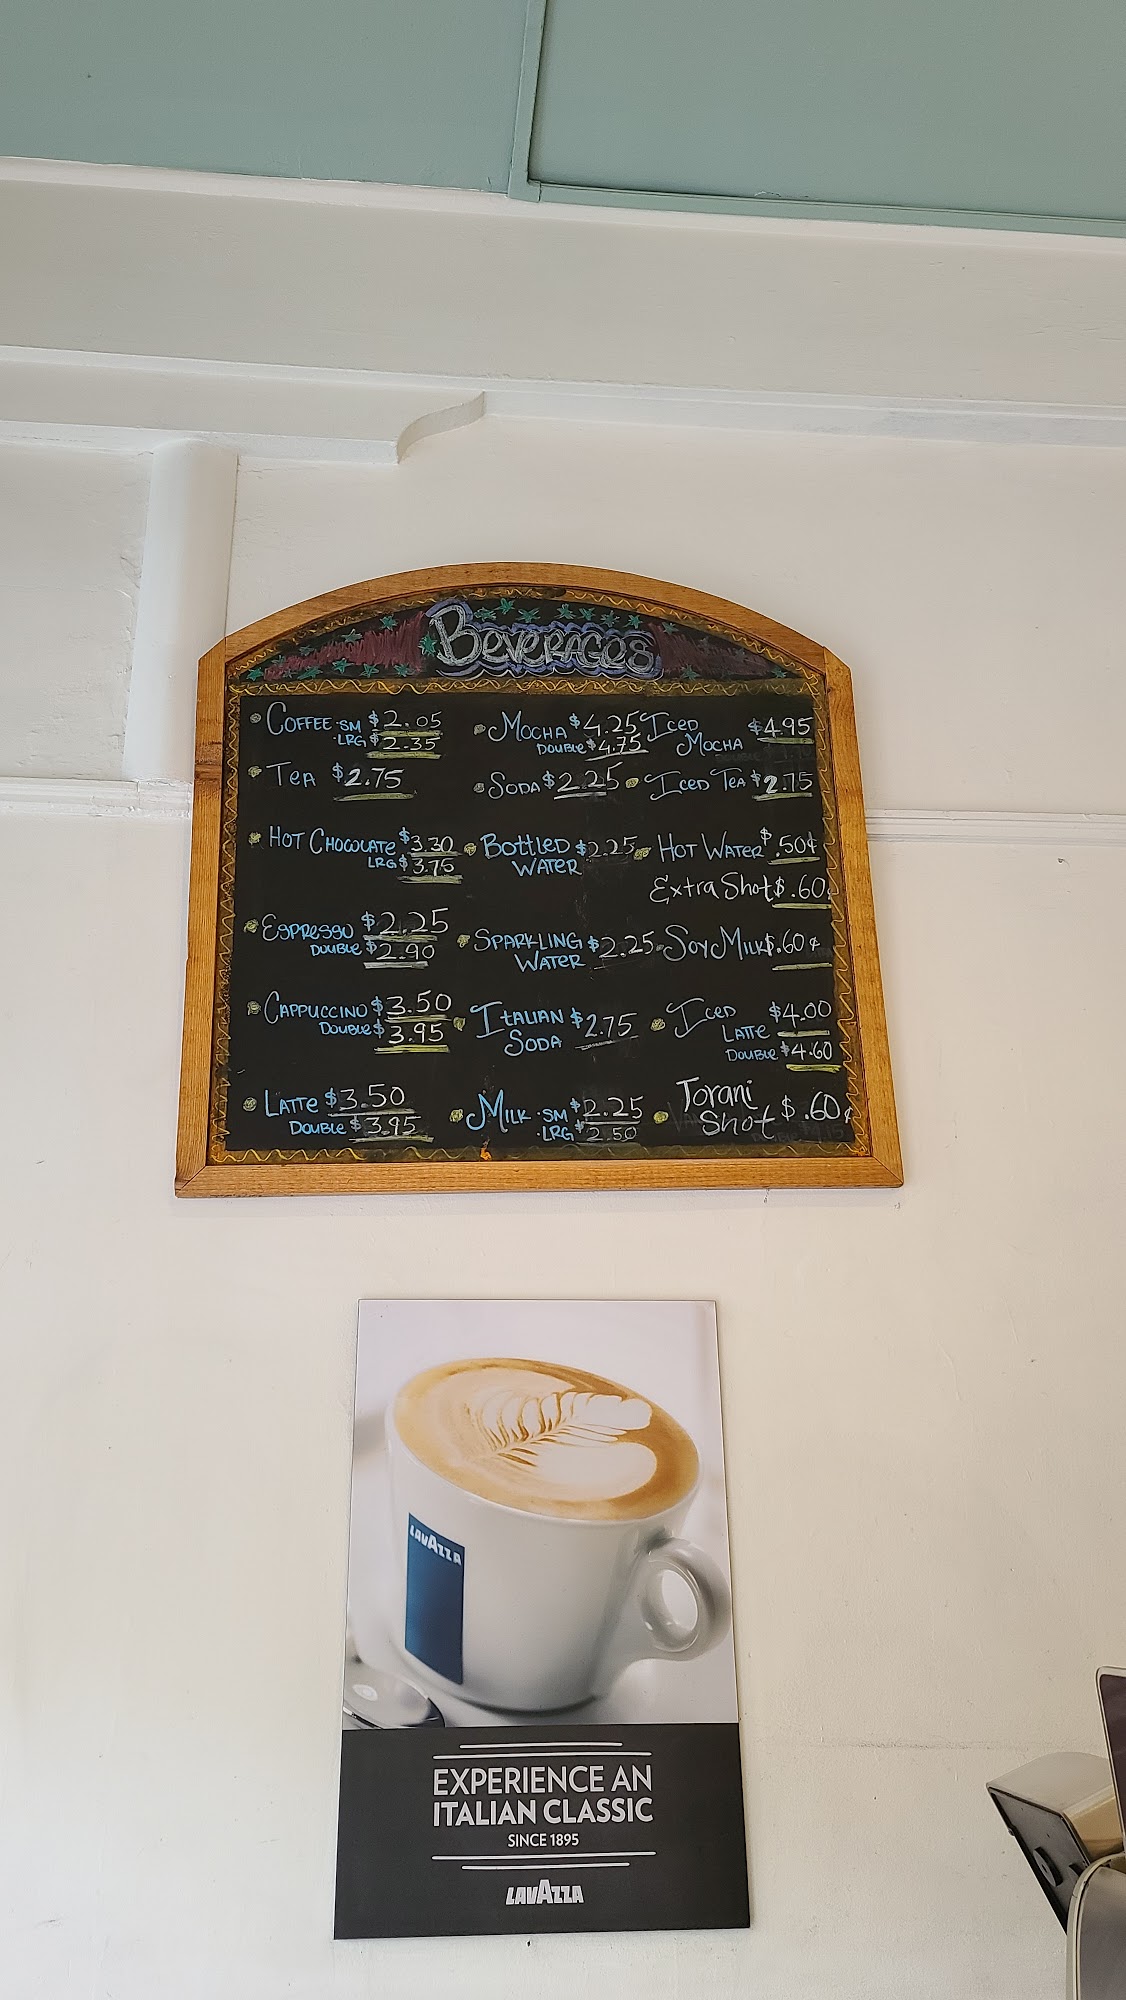 BEVERAGES
COFFEE .SM $2.05
.LRG $2.35
TEA $2.75
HOT CHOCOLATE $3.30
LRG $3.75
ESPRESSO $2.25
DOUBLE $2.90
CAPPUCCINO $3.50
DOUBLE $3.95
LATTE $3.50
DOUBLE $3.95
MOCHA $4.25
DOUBLE $4.75
SODA $2.25
BOTTLED $2.25
WATER
SPARKLING $2.25
WATER
ITALIAN $2.75
SODA
MILK .SM $2.25
.LRG $2.50
ICED $4.95
MOCHA
ICED TEA $2.75
HOT WATER $.50¢
Extra Shot $.60¢
SOY MILK $.60¢
ICED $4.00
LATTE
DOUBLE $4.60
Torani $.60¢
Shot
LAVAZZA
EXPERIENCE AN
ITALIAN CLASSIC
SINCE 1895
LAVAZZA